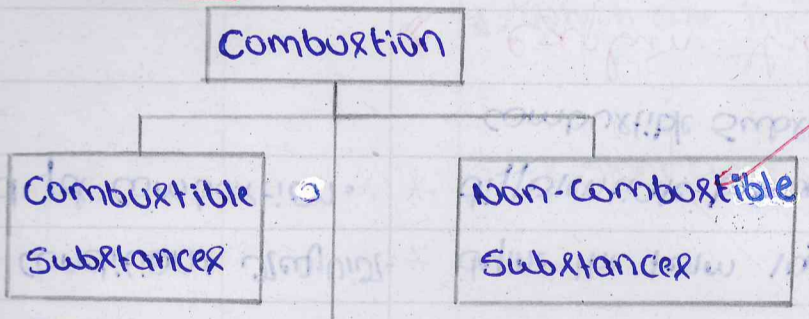 Combustion
Combustible
Substances
Non-combustible
Substances